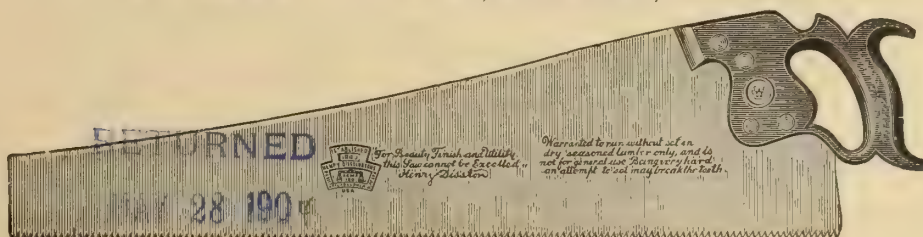 RETURNED
MAY 28 190
For Beauty, Finish and Utility
this Saw cannot be Excelled
Henry Disston
U S A
Warranted to run without set on
dry seasoned lumber only, and is
not for general use. Being very hard
an attempt to set may break the teeth.